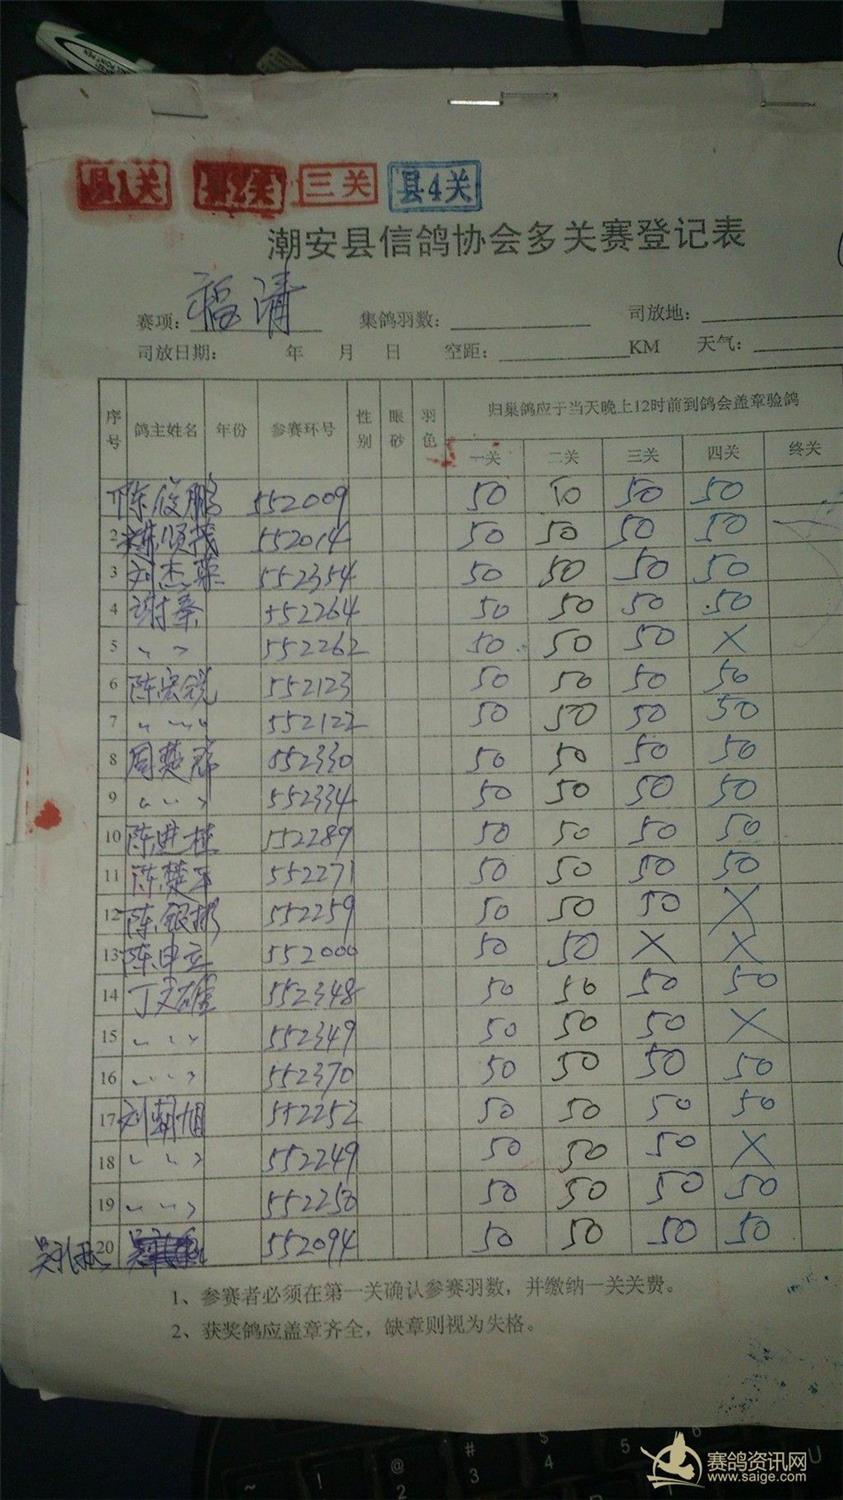 县1关 县2关 三关 县4关
潮安县信鸽协会多关赛登记表
赛项: 福清 集鸽羽数: 司放地:
司放日期: 年 月 日 空距: KM 天气:
序号 鸽主姓名 年份 参赛环号 性别 眼砂 羽色 归巢鸽应于当天晚上12时前到鸽会盖章验鸽
一关 二关 三关 四关 终关
1 陈俊鹏 552009 50 50 50 50
2 陈顺茂 552014 50 50 50 50
3 刘杰荣 552354 50 50 50 50
4 谢泰 552264 50 50 50 50
5 〃 〃 552262 50 50 50 X
6 陈宏锐 552123 50 50 50 50
7 〃 〃 〃 552122 50 50 50 50
8 周楚 552330 50 50 50 50
9 〃 〃 〃 552334 50 50 50 50
10 陈进桂 552289 50 50 50 50
11 陈楚平 552271 50 50 50 50
12 陈银彬 552259 50 50 50 X
13 陈申立 552000 50 50 X X
14 丁文雄 552348 50 50 50 50
15 〃 〃 〃 552349 50 50 50 X
16 〃 〃 〃 552370 50 50 50 50
17 刘朝旭 552252 50 50 50 50
18 〃 〃 〃 552249 50 50 50 X
19 〃 〃 〃 552250 50 50 50 50
20 552094 50 50 50 50
1、参赛者必须在第一关确认参赛羽数，并缴纳一关关费。
2、获奖鸽应盖章齐全，缺章则视为失格。
赛鸽资讯网
www.saige.com